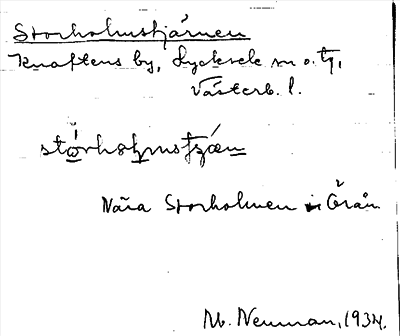 Storholmstjärnen
Knaftens by, Lycksele sn o. tg,
Västerb. l.
Nära Storholmen i Örån
M. Neuman, 1934.